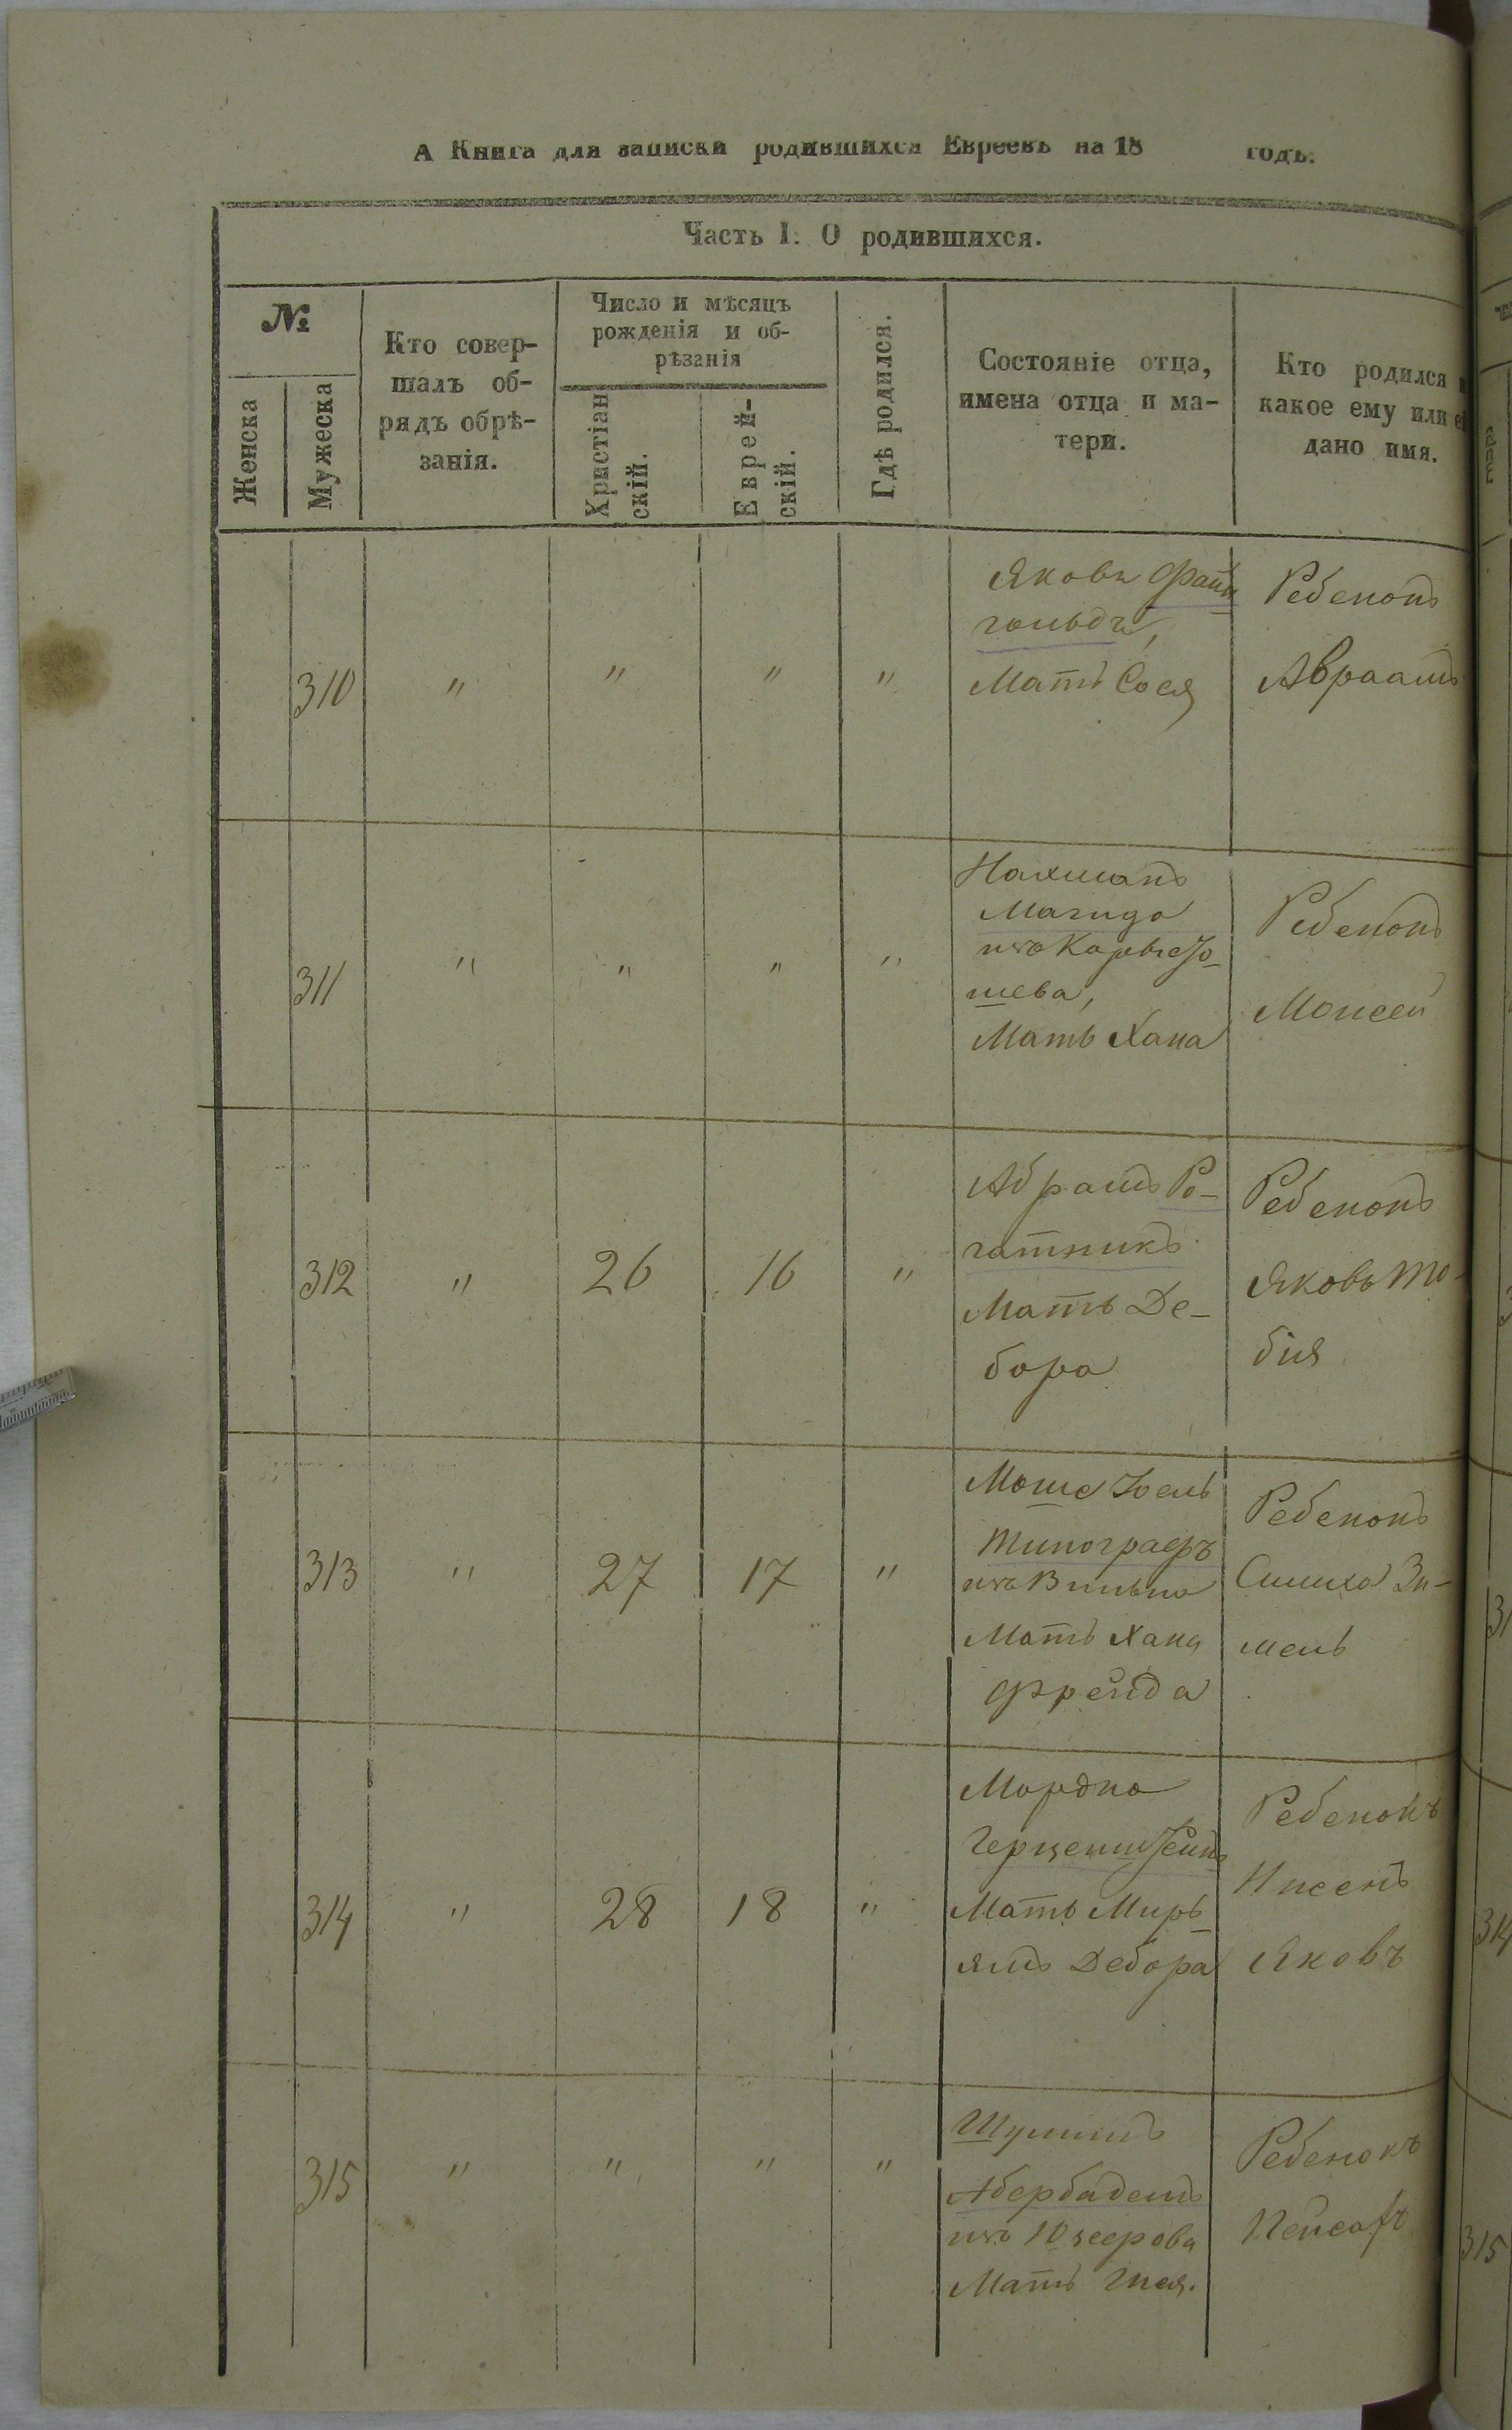 А Книга для записки родившихся Евреевъ на 18 годъ.
Часть I. О родившихся.
№
Женска
Мужеска
Кто совер-
шалъ об-
рядъ обрѣ-
занія.
Число и мѣсяцъ
рожденія и об-
рѣзанія
Христіан
скій.
Еврей-
скій.
Гдѣ родился.
Состояніе отца,
имена отца и ма-
тери.
Кто родился и
какое ему или ей
дано имя.
310 " " " "
Яковъ Файн
гольдъ,
Мать Сося
Ребенокъ
Авраамъ
311 " " " "
Нахманъ
Магидъ
изъ
шева,
Мать Хана
Ребенокъ
Моисей
312 " 26 16 "
Абрамъ Ро-
гатникъ
Мать Де-
бора
Ребенокъ
Яковъ То-
бія
313 " 27 17 "
Моше Іоель
Типографъ
изъ Вильна
Мать Хана
Фрейда
Ребенокъ
Симха Зи-
мель
314 " 28 18 "
Мордхо
Герценштейнъ
Мать Мирь
ямъ Дебора
Ребенокъ
Нисенъ
Яковъ
315 " " " "
Шулимъ
изъ Юзерова
Мать
Ребенокъ
Пейсахъ
31
314
315